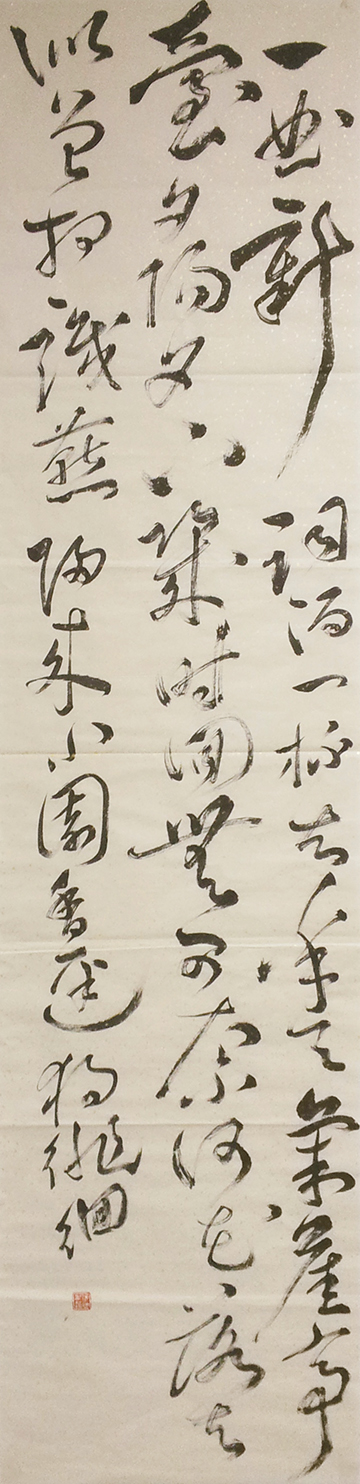 一曲新詞酒一杯去年天氣舊亭
臺夕陽西下幾時回無可奈何花落去
似曾相識燕歸來小園香逕獨徘徊